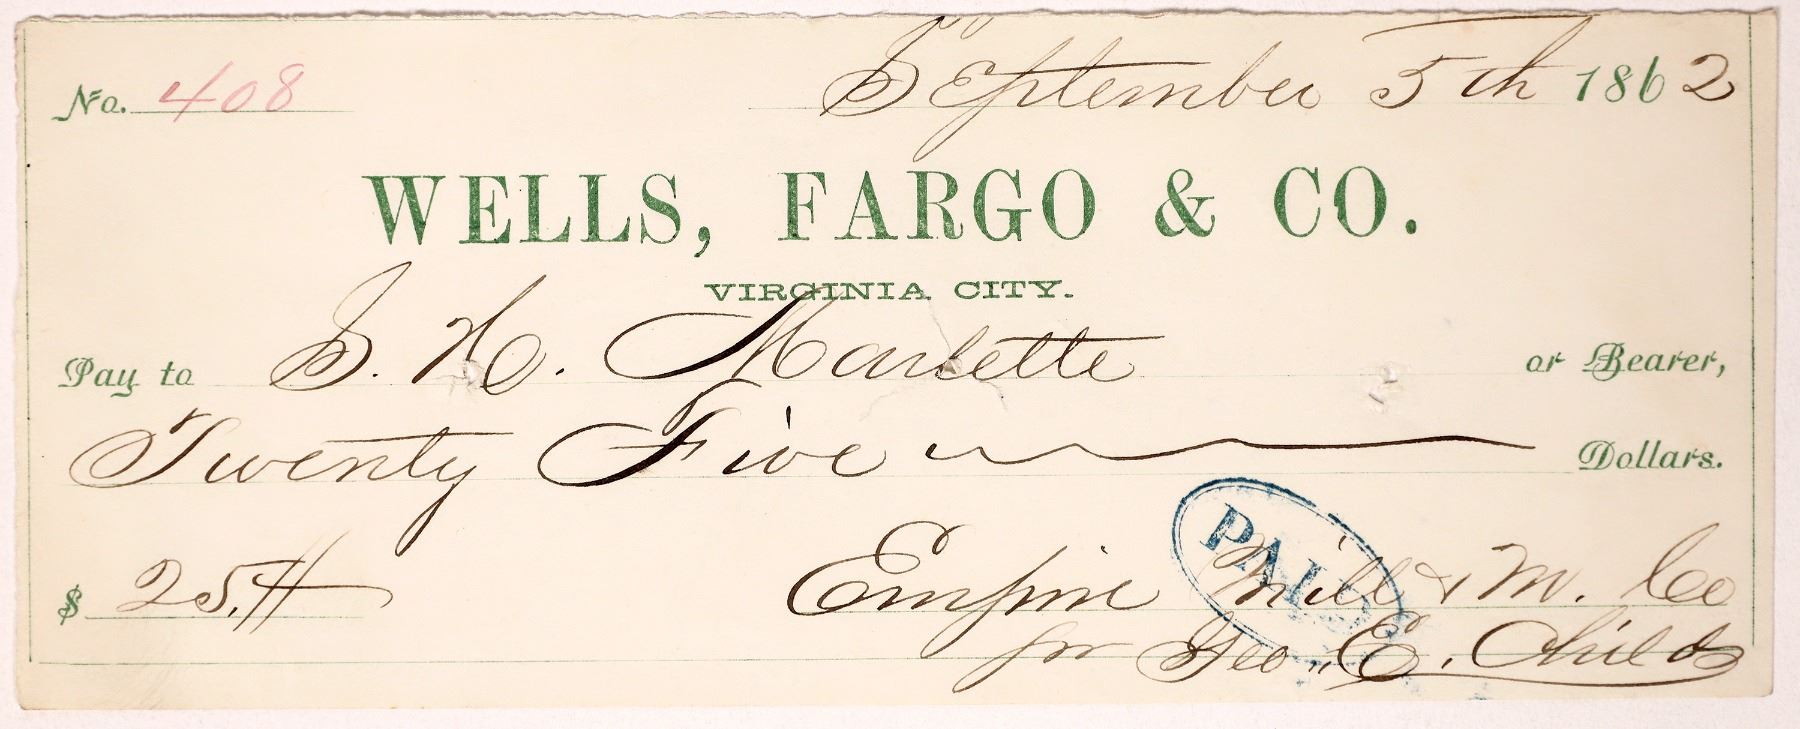 No. 408 September 5th 1862
WELLS, FARGO & CO.
VIRGINIA CITY.
Pay to S. H. Marlette or Bearer,
Twenty Five Dollars.
PAID
$ 25.
Empire Mill & M. Co
pr Geo. E. Childs